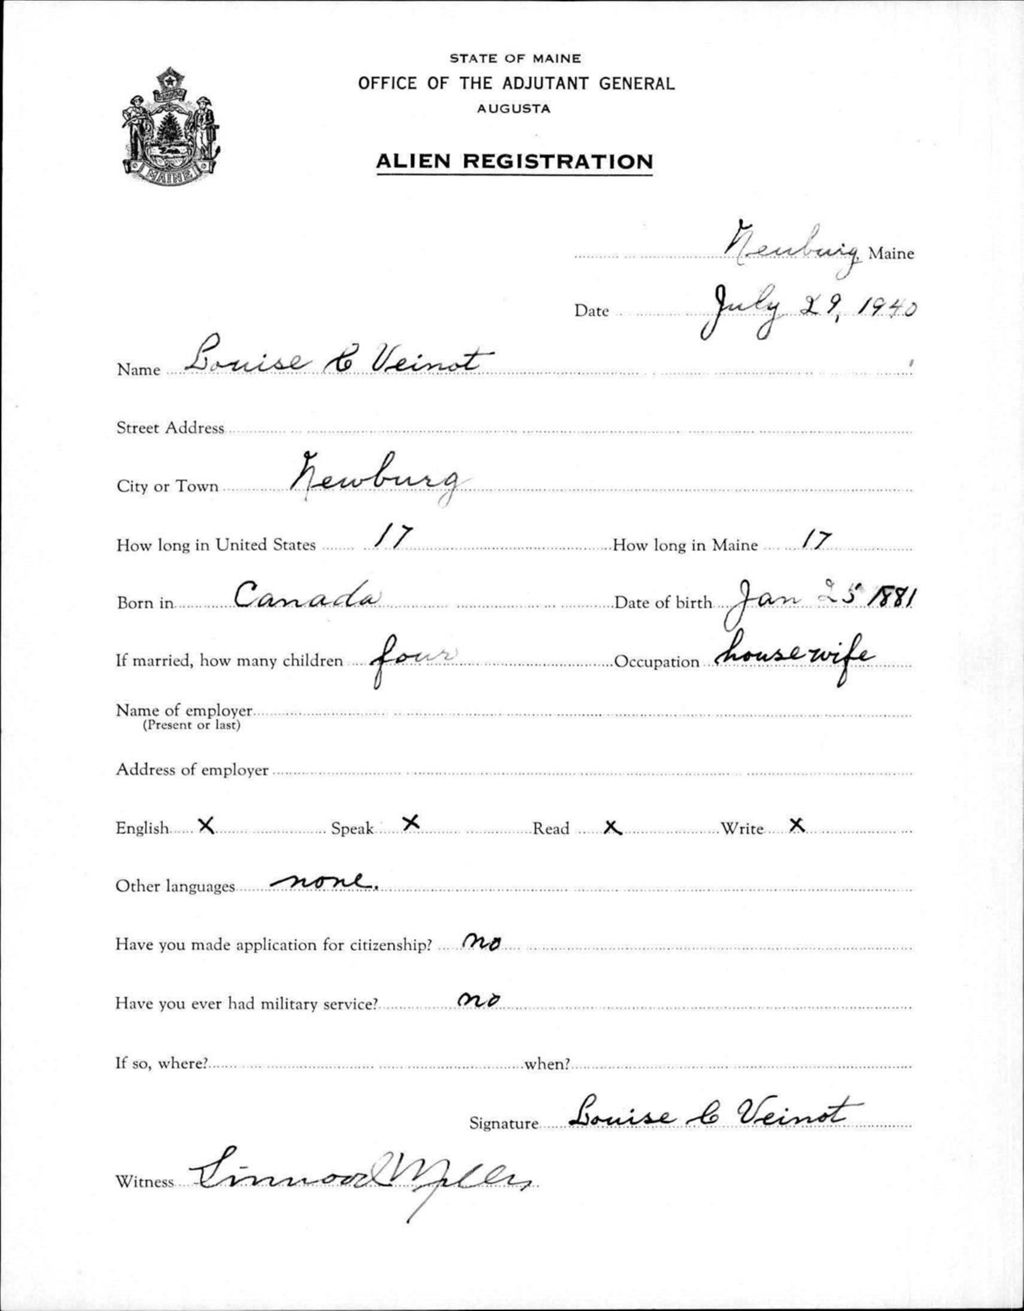 STATE OF MAINE
OFFICE OF THE ADJUTANT GENERAL
AUGUSTA
ALIEN REGISTRATION
MAINE
Newburg, Maine
Date July 29, 1940
Name Louise C Veinot
Street Address
City or Town Newburg
How long in United States 17 How long in Maine 17
Born in Canada Date of birth Jan 25 1881
If married, how many children four Occupation housewife
Name of employer
(Present or last)
Address of employer
English X Speak X Read X Write X
Other languages none.
Have you made application for citizenship? no
Have you ever had military service? no
If so, where? when?
Signature Louise C Veinot
Witness Linwood